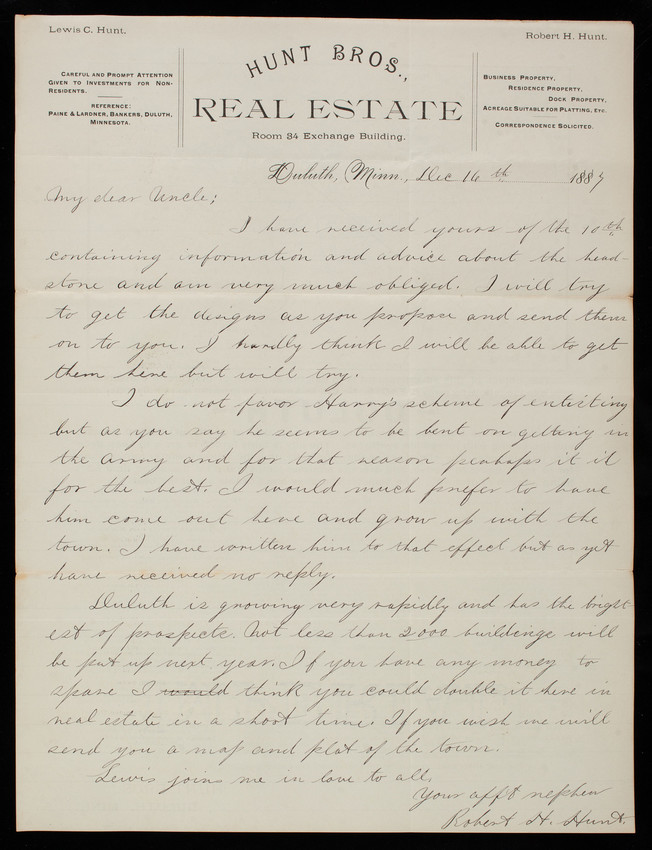 Lewis C. Hunt.
Robert H. Hunt.
HUNT BROS.,
REAL ESTATE
Room 34 Exchange Building.
CAREFUL AND PROMPT ATTENTION
GIVEN TO INVESTMENTS FOR NON-
RESIDENTS.
REFERENCE:
PAINE & LARDNER, BANKERS, DULUTH,
MINNESOTA.
BUSINESS PROPERTY,
RESIDENCE PROPERTY,
DOCK PROPERTY,
ACREAGE SUITABLE FOR PLATTING, ETC.
CORRESPONDENCE SOLICITED.
Duluth, Minn., Dec 16th 1887
My dear Uncle;
I have received yours of the 10th
containing information and advice about the head-
stone and am very much obliged. I will try
to get the designs as you propose and send them
on to you. I hardly think I will be able to get
them here but will try.
I do not favor Harry's scheme of enlisting
but as you say he seems to be bent on getting in
the army and for that reason perhaps it is
for the best. I would much prefer to have
him come out here and grow up with the
town. I have written him to that effect but as yet
have received no reply.
Duluth is growing very rapidly and has the bright-
est of prospects. Not less than 2000 buildings will
be put up next year. If you have any money to
spare I would think you could double it here in
real estate in a short time. If you wish we will
send you a map and plat of the town.
Lewis joins me in love to all.
Your aff't nephew
Robert H. Hunt.